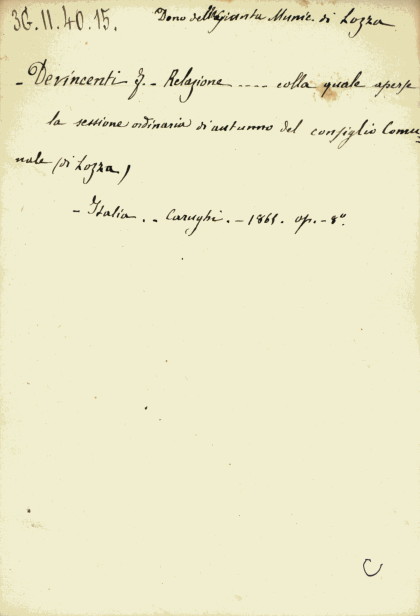 3G.11.40.15.
Dono della giunta Munic. di Lozza
- Devincenti F. - Relazione .... colla quale aperse
la sessione ordinaria di autunno del consiglio Comu=
nale (di Lozza)
- Italia. - Carughi. - 1865. op. - 8°.
C